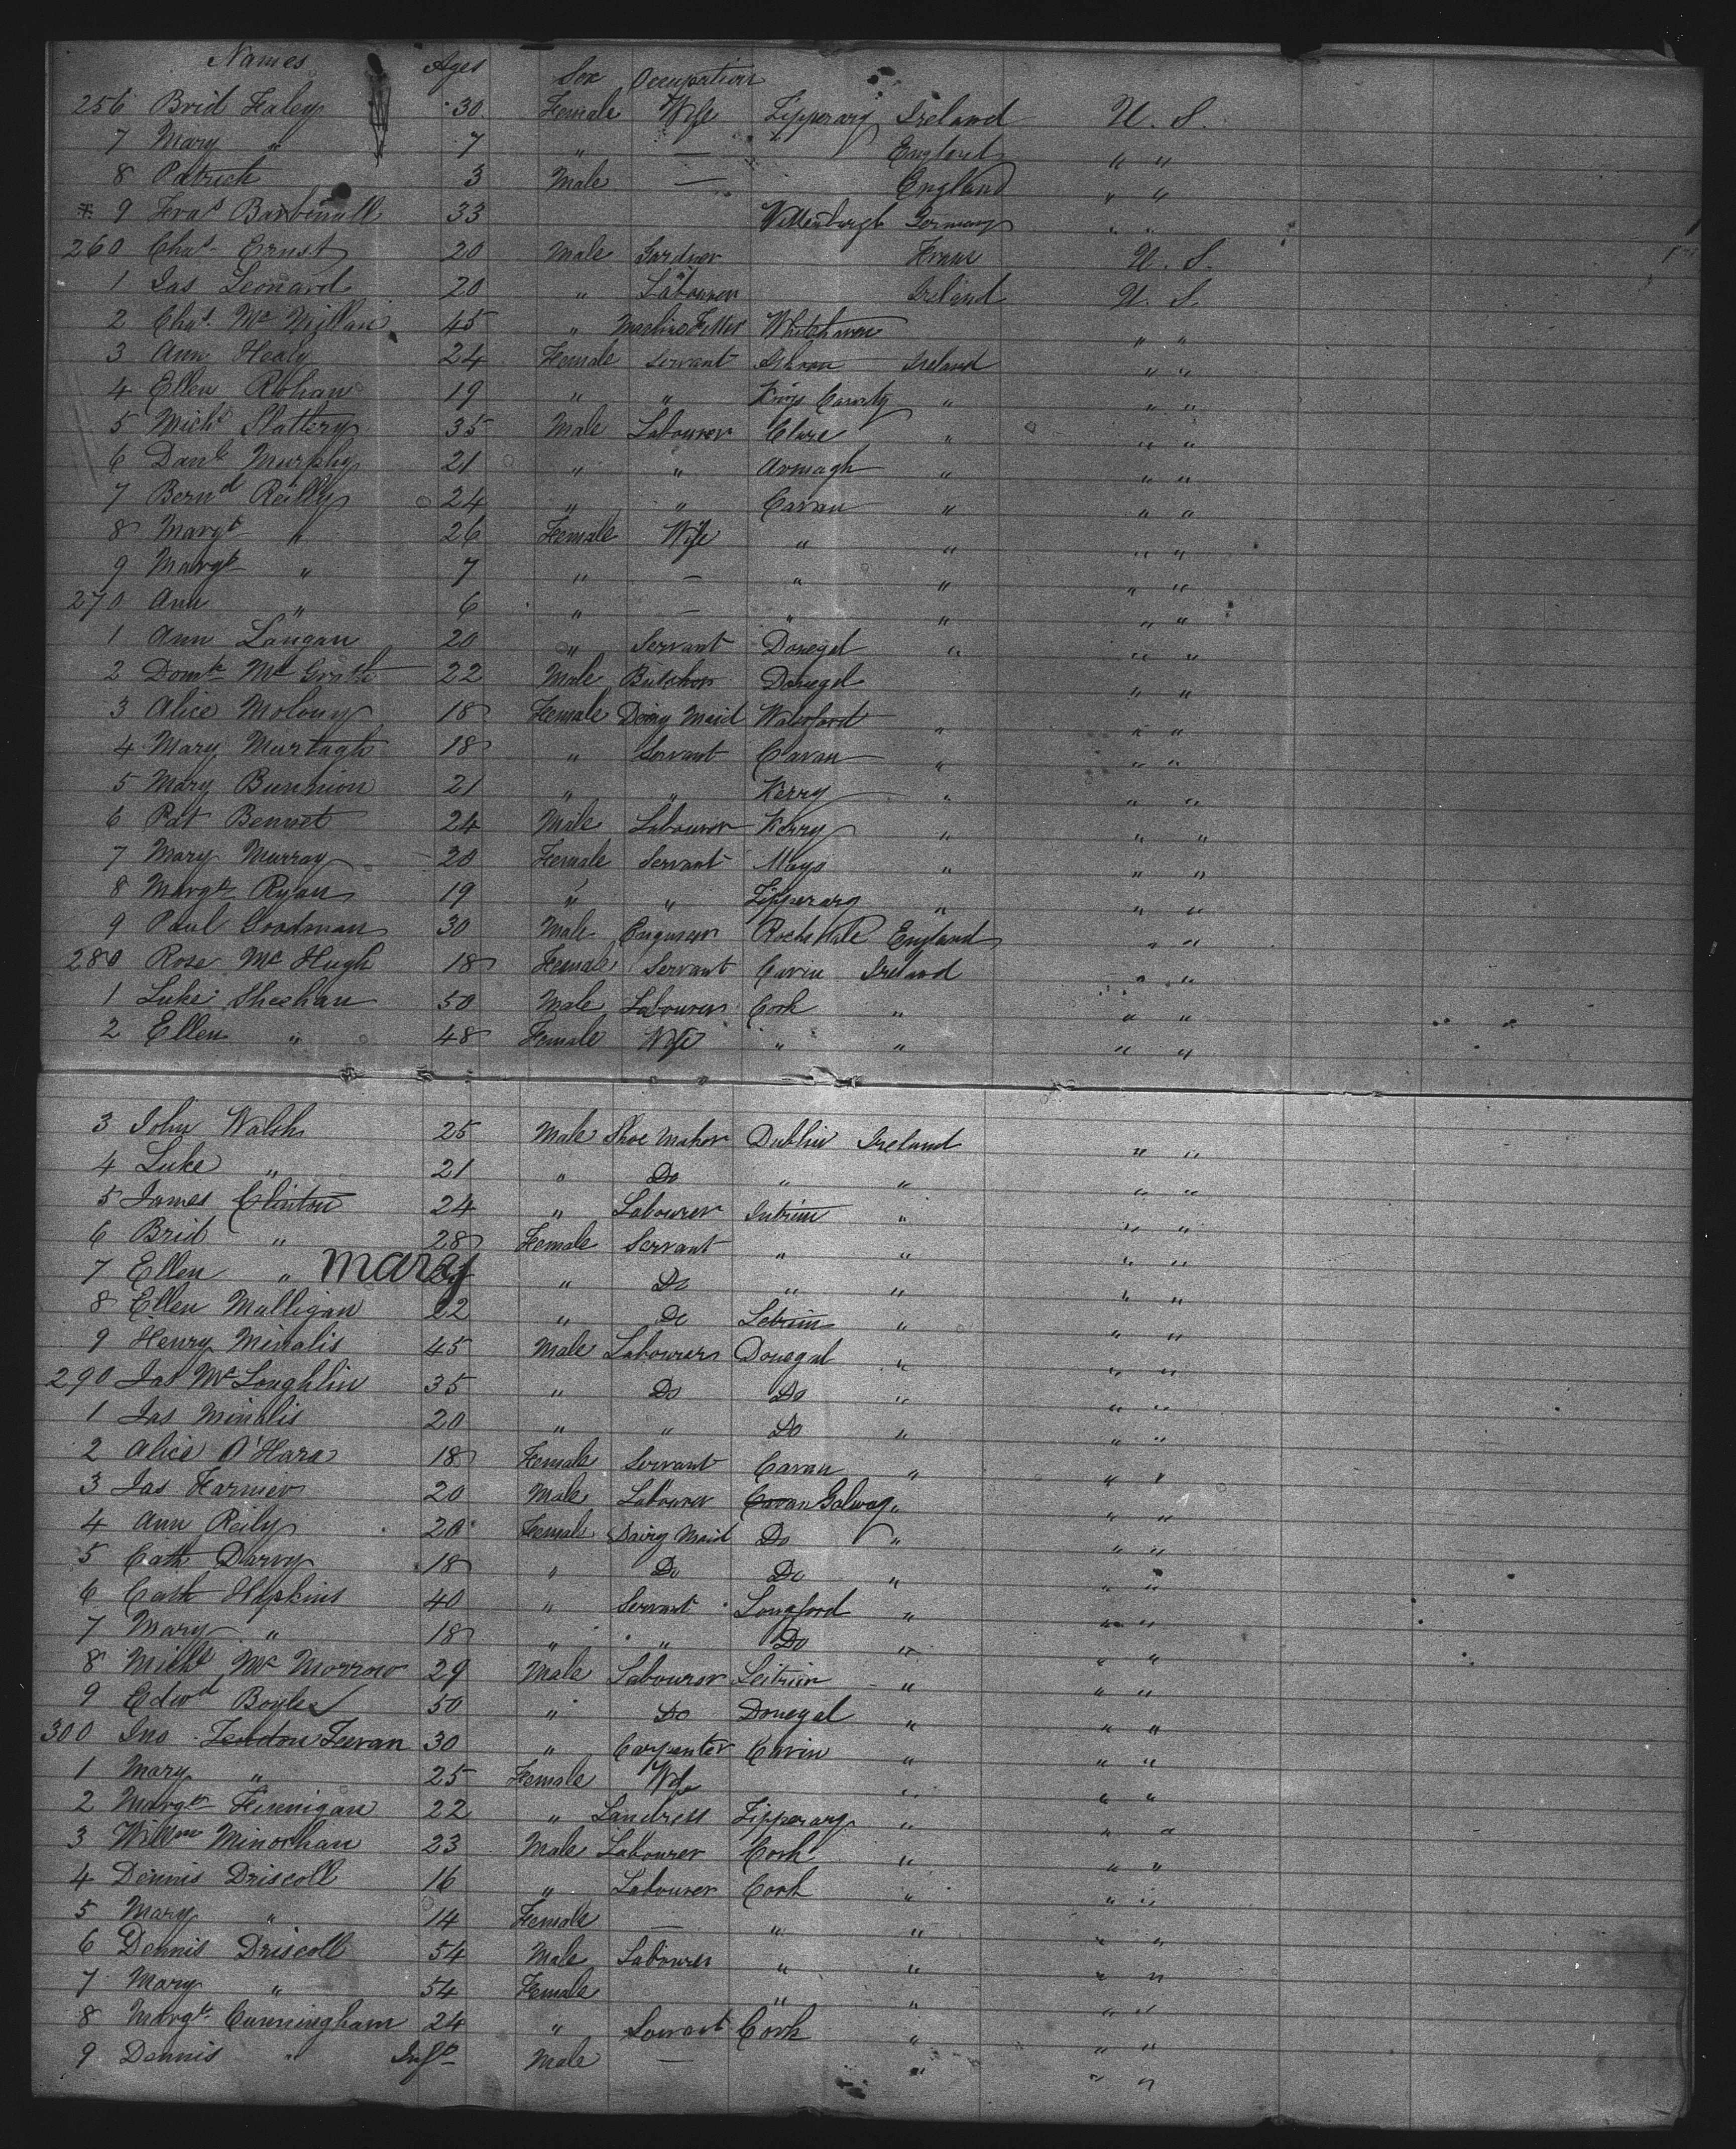 Names Ages Sex Occupation
256 Brid Faley 30 Female Wife Tipperary Ireland U. S.
7 Mary " 7 " — England " "
8 Patrick 3 Male — England " "
9 Fras 33 Germany " "
260 Chas Ernst 20 Male Gardner U. S.
1 Jas Leonard 20 " Labourer Ireland U. S.
2 Chas. Mc Millan 45 " Whitehaven " "
3 Ann Healy 24 Female Servant Ireland " "
4 Ellen Rohan 19 " " Kings County " " "
5 Michl Slattery 35 Male Labourer Clare " " "
6 Danl Murphy 21 " " Armagh " " "
7 Bernd Reilly 24 " " Cavan " " "
8 Margt " 26 Female Wife " " " "
9 Margt " 7 " — " " " "
270 Ann " 6 " — " " " "
1 Ann Langan 20 " Servant Donegal " " "
2 Domk Mc Grath 22 Male Butcher Donegal " "
3 Alice Molony 18 Female Dairy Maid Waterford " " "
4 Mary Murtagh 18 " Servant Cavan " " "
5 Mary Bunnion 21 " " Kerry " " "
6 Pat Bennet 24 Male Labourer Kerry " " "
7 Mary Murray 20 Female Servant Mayo " " "
8 Margt Ryan 19 " " Tipperary " " "
9 Paul Goodman 30 Male Engineer Rochdale England " "
280 Rose Mc Hugh 18 Female Servant Cavin Ireland " "
1 Luke Sheehan 50 Male Labourer Cork " " "
2 Ellen " 48 Female Wife " " " "
3 John Walsh 25 Male Shoe Maker Dublin Ireland " "
4 Luke " 21 " Do " " " "
5 James Clinton 24 " Labourer " " "
6 Brid " 28 Female Servant " " " "
7 Ellen " mary " Do " " " "
8 Ellen Mulligan 22 " Do Letrim " " "
9 Henry Minalis 45 Male Labourer Donegal " " "
290 Jas Mc Loughlin 35 " Do Do " " "
1 Jas Minalis 20 " " Do " " "
2 Alice O'Hara 18 Female Servant Cavan " " "
3 Jas Farmer 20 Male Labourer Cavan Galway " " "
4 Ann Reily 20 Female Dairy Maid Do " " "
5 Cath Darvy 18 " Do Do " " "
6 Cath Hopkins 40 " Servant Longford " " "
7 Mary " 18 " " Do " " "
8 Michl Mc Morrow 29 Male Labourer Leitrim " " "
9 Edwd Boyle 50 " Do Donegal " " "
300 Jno Feevan 30 " Carpenter Cavin " " "
1 Mary " 25 Female Wife " " "
2 Margt Finnigan 22 " Landress Tipperary " " "
3 Willm Minorhan 23 Male Labourer Cork " " "
4 Dennis Driscoll 16 " Labourer Cork " " "
5 Mary " 14 Female — " " " "
6 Dennis Driscoll 54 Male Labourer " " " "
7 Mary " 54 Female " " " "
8 Margt Cunningham 24 " Servant Cork " " "
9 Dennis " Inft Male — " " "